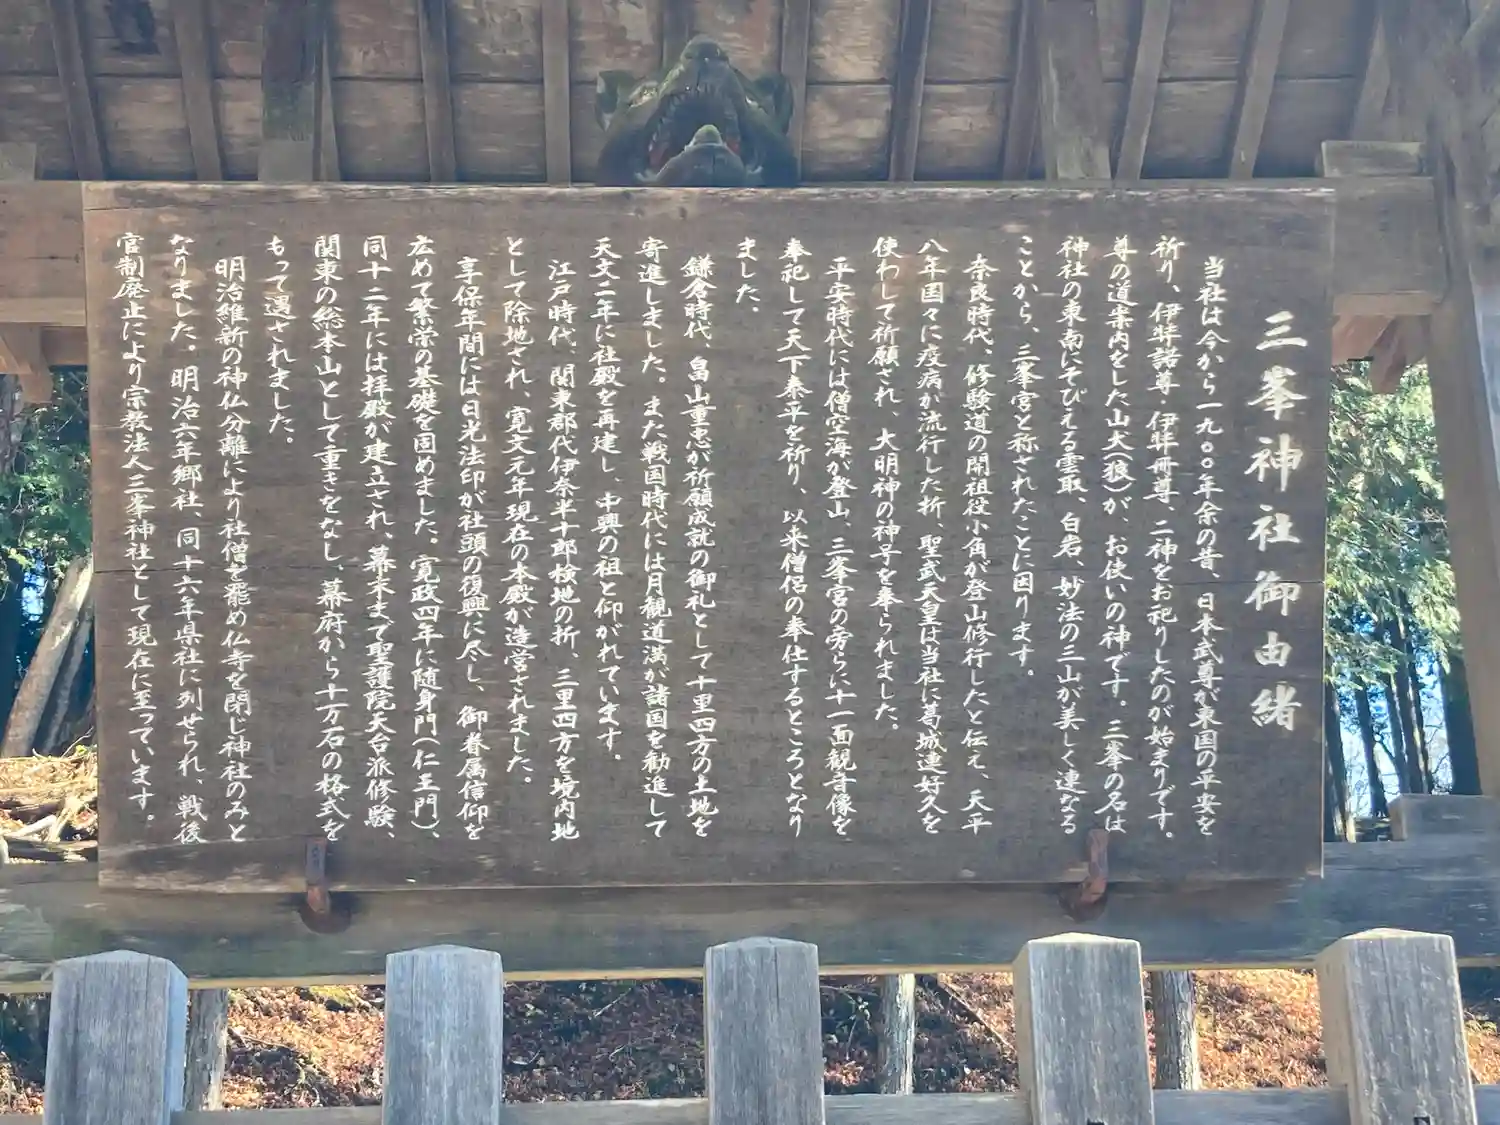 三峯神社御由緒
当社は今から一九〇〇年余の昔、日本武尊が東国の平安を
祈り、伊弉諾尊 伊弉册尊、二神をお祀りしたのが始まりです。
尊の道案内をした山犬(狼)が、お使いの神です。三峯の名は
神社の東南にそびえる雲取、白岩、妙法の三山が美しく連なる
ことから、三峯宮と称されたことに因ります。
奈良時代、修験道の開祖役小角が登山修行したと伝え、天平
八年国々に疫病が流行した折、聖武天皇は当社に葛城連好久を
使わして祈願され、大明神の神号を奉られました。
平安時代には僧空海が登山、三峯宮の旁らに十一面観音像を
奉祀して天下泰平を祈り、以来僧侶の奉仕するところとなり
ました。
鎌倉時代、畠山重忠が祈願成就の御礼として十里四方の土地を
寄進しました。また戦国時代には月観道満が諸国を勧進して
天文二年に社殿を再建し、中興の祖と仰がれています。
江戸時代、関東郡代伊奈半十郎検地の折、三里四方を境内地
として除地され、寛文元年現在の本殿が造営されました。
享保年間には日光法印が社頭の復興に尽し、御眷属信仰を
広めて繁栄の基礎を固めました。寛政四年に随身門(仁王門)、
同十二年には拝殿が建立され、幕末まで聖護院天台派修験、
関東の総本山として重きをなし、幕府から十万石の格式を
もって遇されました。
明治維新の神仏分離により社僧を罷め仏寺を閉じ神社のみと
なりました。明治六年郷社、同十六年県社に列せられ、戦後
官制廃止により宗教法人三峯神社として現在に至っています。